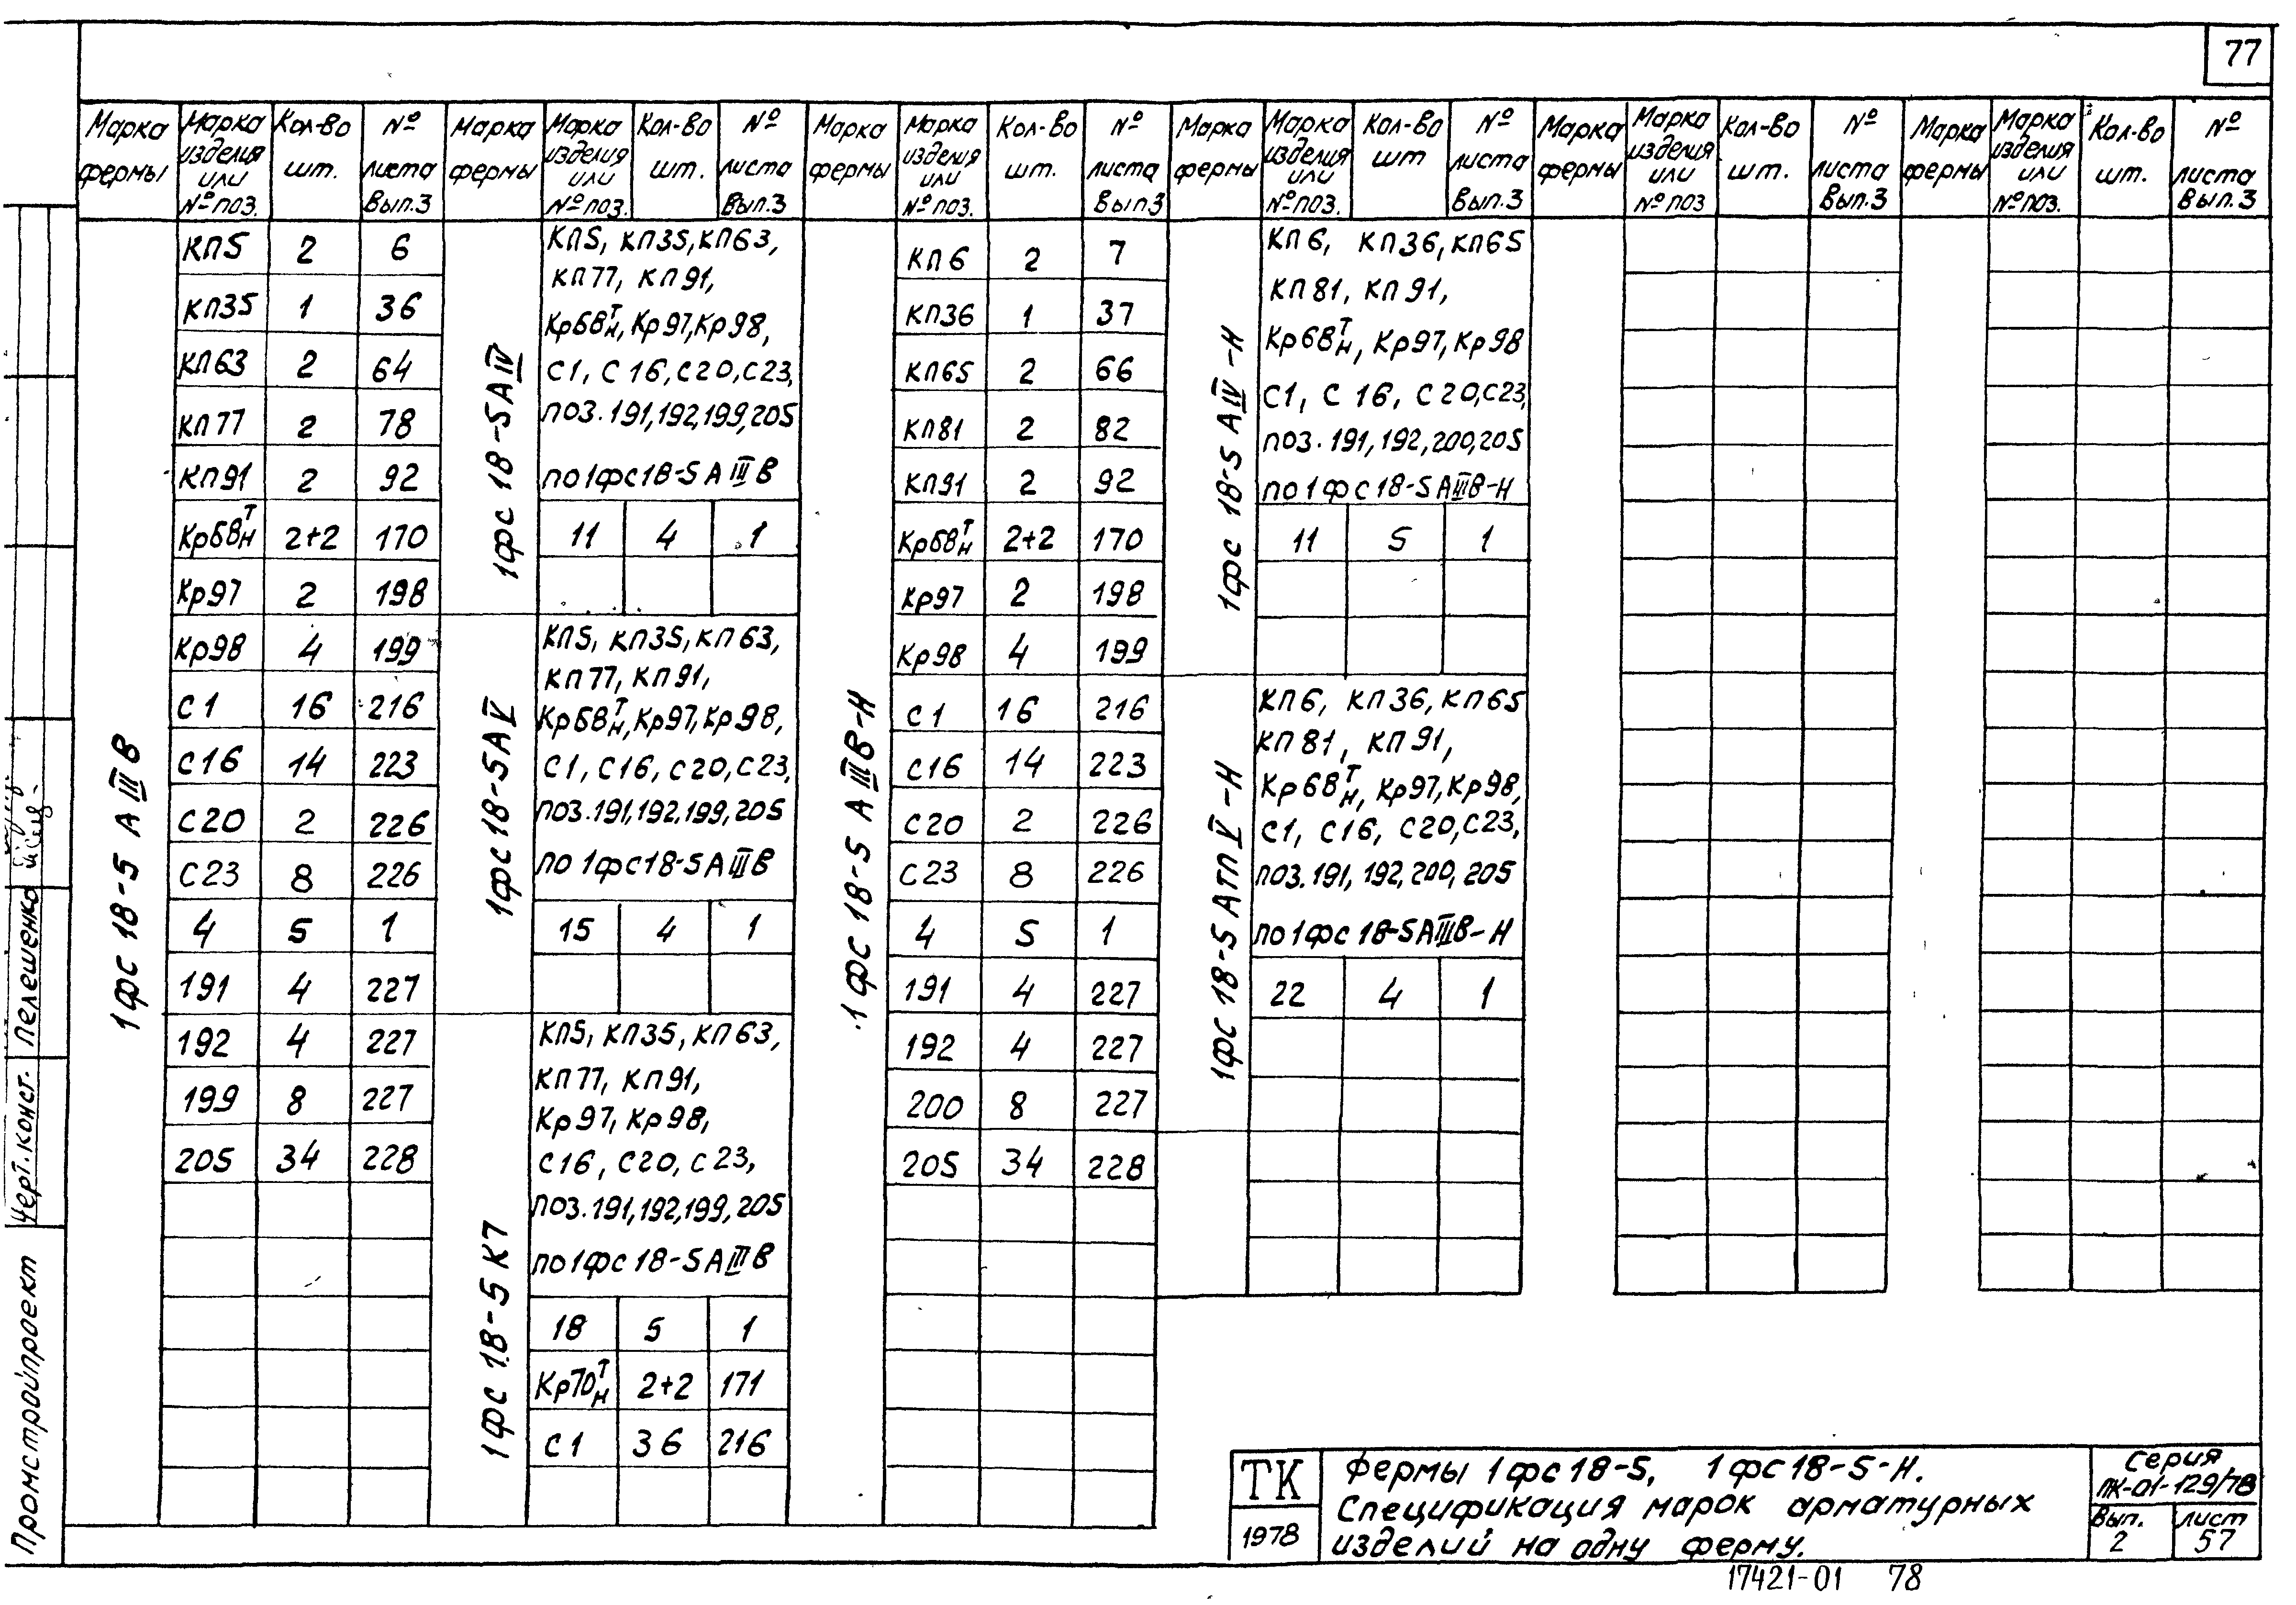 77
Марка фермы | Марка изделия или № поз. | Кол-во шт. | № листа Вып.3 | Марка фермы | Марка изделия или № поз. | Кол-во шт. | № листа Вып.3 | Марка фермы | Марка изделия или № поз. | Кол-во шт. | № листа Вып.3 | Марка фермы | Марка изделия или № поз. | Кол-во шт | № листа Вып.3 | Марка фермы | Марка изделия или № поз | Кол-во шт. | № листа Вып.3 | Марка фермы | Марка изделия или № поз. | Кол-во шт. | № листа Вып.3
1фс 18-5 АIIIВ
КП5 2 6
КП35 1 36
КП63 2 64
КП77 2 78
КП91 2 92
Кр68тн 2+2 170
Кр97 2 198
Кр98 4 199
С1 16 216
С16 14 223
С20 2 226
С23 8 226
4 5 1
191 4 227
192 4 227
199 8 227
205 34 228
1фс 18-5АIV
КП5, КП35, КП63,
КП77, КП91,
Кр68тн, Кр97, Кр98,
С1, С16, С20, С23,
поз.191,192,199,205
по 1фс18-5АIIIВ
11 4 1
1фс18-5АV
КП5, КП35, КП63,
КП77, КП91,
Кр68тн, Кр97, Кр98,
С1, С16, С20, С23,
поз.191,192,199,205
по 1фс18-5АIIIВ
15 4 1
1фс 18-5К7
КП5, КП35, КП63,
КП77, КП91,
Кр97, Кр98,
С16, С20, С23,
поз.191,192,199,205
по 1фс18-5АIIIВ
18 5 1
Кр70тн 2+2 171
С1 36 216
1фс 18-5 АIIIВ-Н
КП6 2 7
КП36 1 37
КП65 2 66
КП81 2 82
КП91 2 92
Кр68тн 2+2 170
Кр97 2 198
Кр98 4 199
С1 16 216
С16 14 223
С20 2 226
С23 8 226
4 5 1
191 4 227
192 4 227
200 8 227
205 34 228
1фс 18-5 АIV-Н
КП6, КП36, КП65
КП81, КП91,
Кр68тн, Кр97, Кр98
С1, С16, С20, С23,
поз.191,192,200,205
по 1фс18-5АIIIВ-Н
11 5 1
1фс 18-5АтпV-Н
КП6, КП36, КП65
КП81, КП91,
Кр68тн, Кр97, Кр98,
С1, С16, С20, С23,
поз.191,192,200,205
по 1фс18-5АIIIВ-Н
22 4 1
Промстройпроект
Черт.конст. Пелешенко
ТК
1978
Фермы 1фс18-5, 1фс18-5-Н.
Спецификация марок арматурных
изделий на одну ферму.
Серия
ПК-01-129/78
Вып. 2
лист 57
17421-01 78